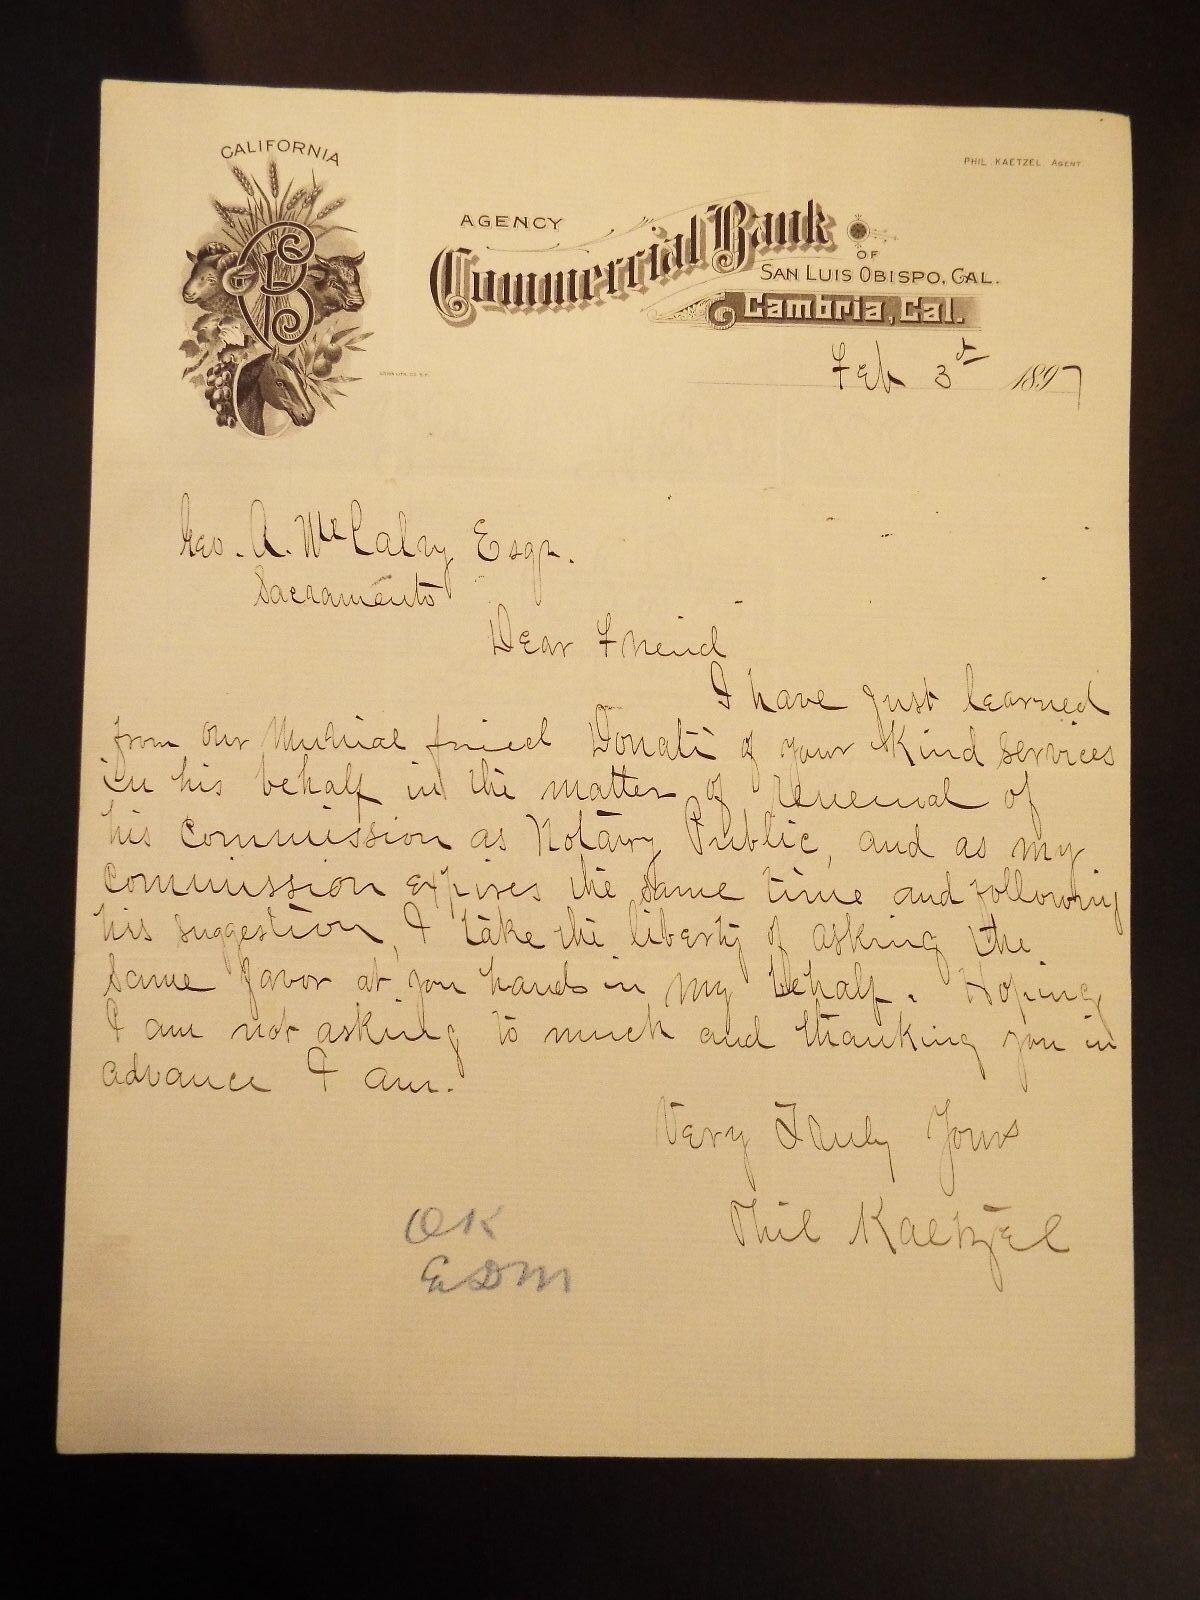 CALIFORNIA
PHIL KAETZEL AGENT
AGENCY
Commercial Bank
OF
SAN LUIS OBISPO, CAL.
Cambria, Cal.
Feb 3rd 1897
Geo. A. McCalvy Esqr.
Sacramento
Dear Friend
I have just learned
from our Mutual friend Donati of your kind services
in his behalf in the matter of renewal of
his Commission as Notary Public, and as my
Commission expires the same time and following
his suggestion, I take the liberty of asking the
same favor at you hands in my behalf. Hoping
I am not asking to much and thanking you in
advance I am.
Very Truly Yours
Phil Kaetzel
OK
EDM